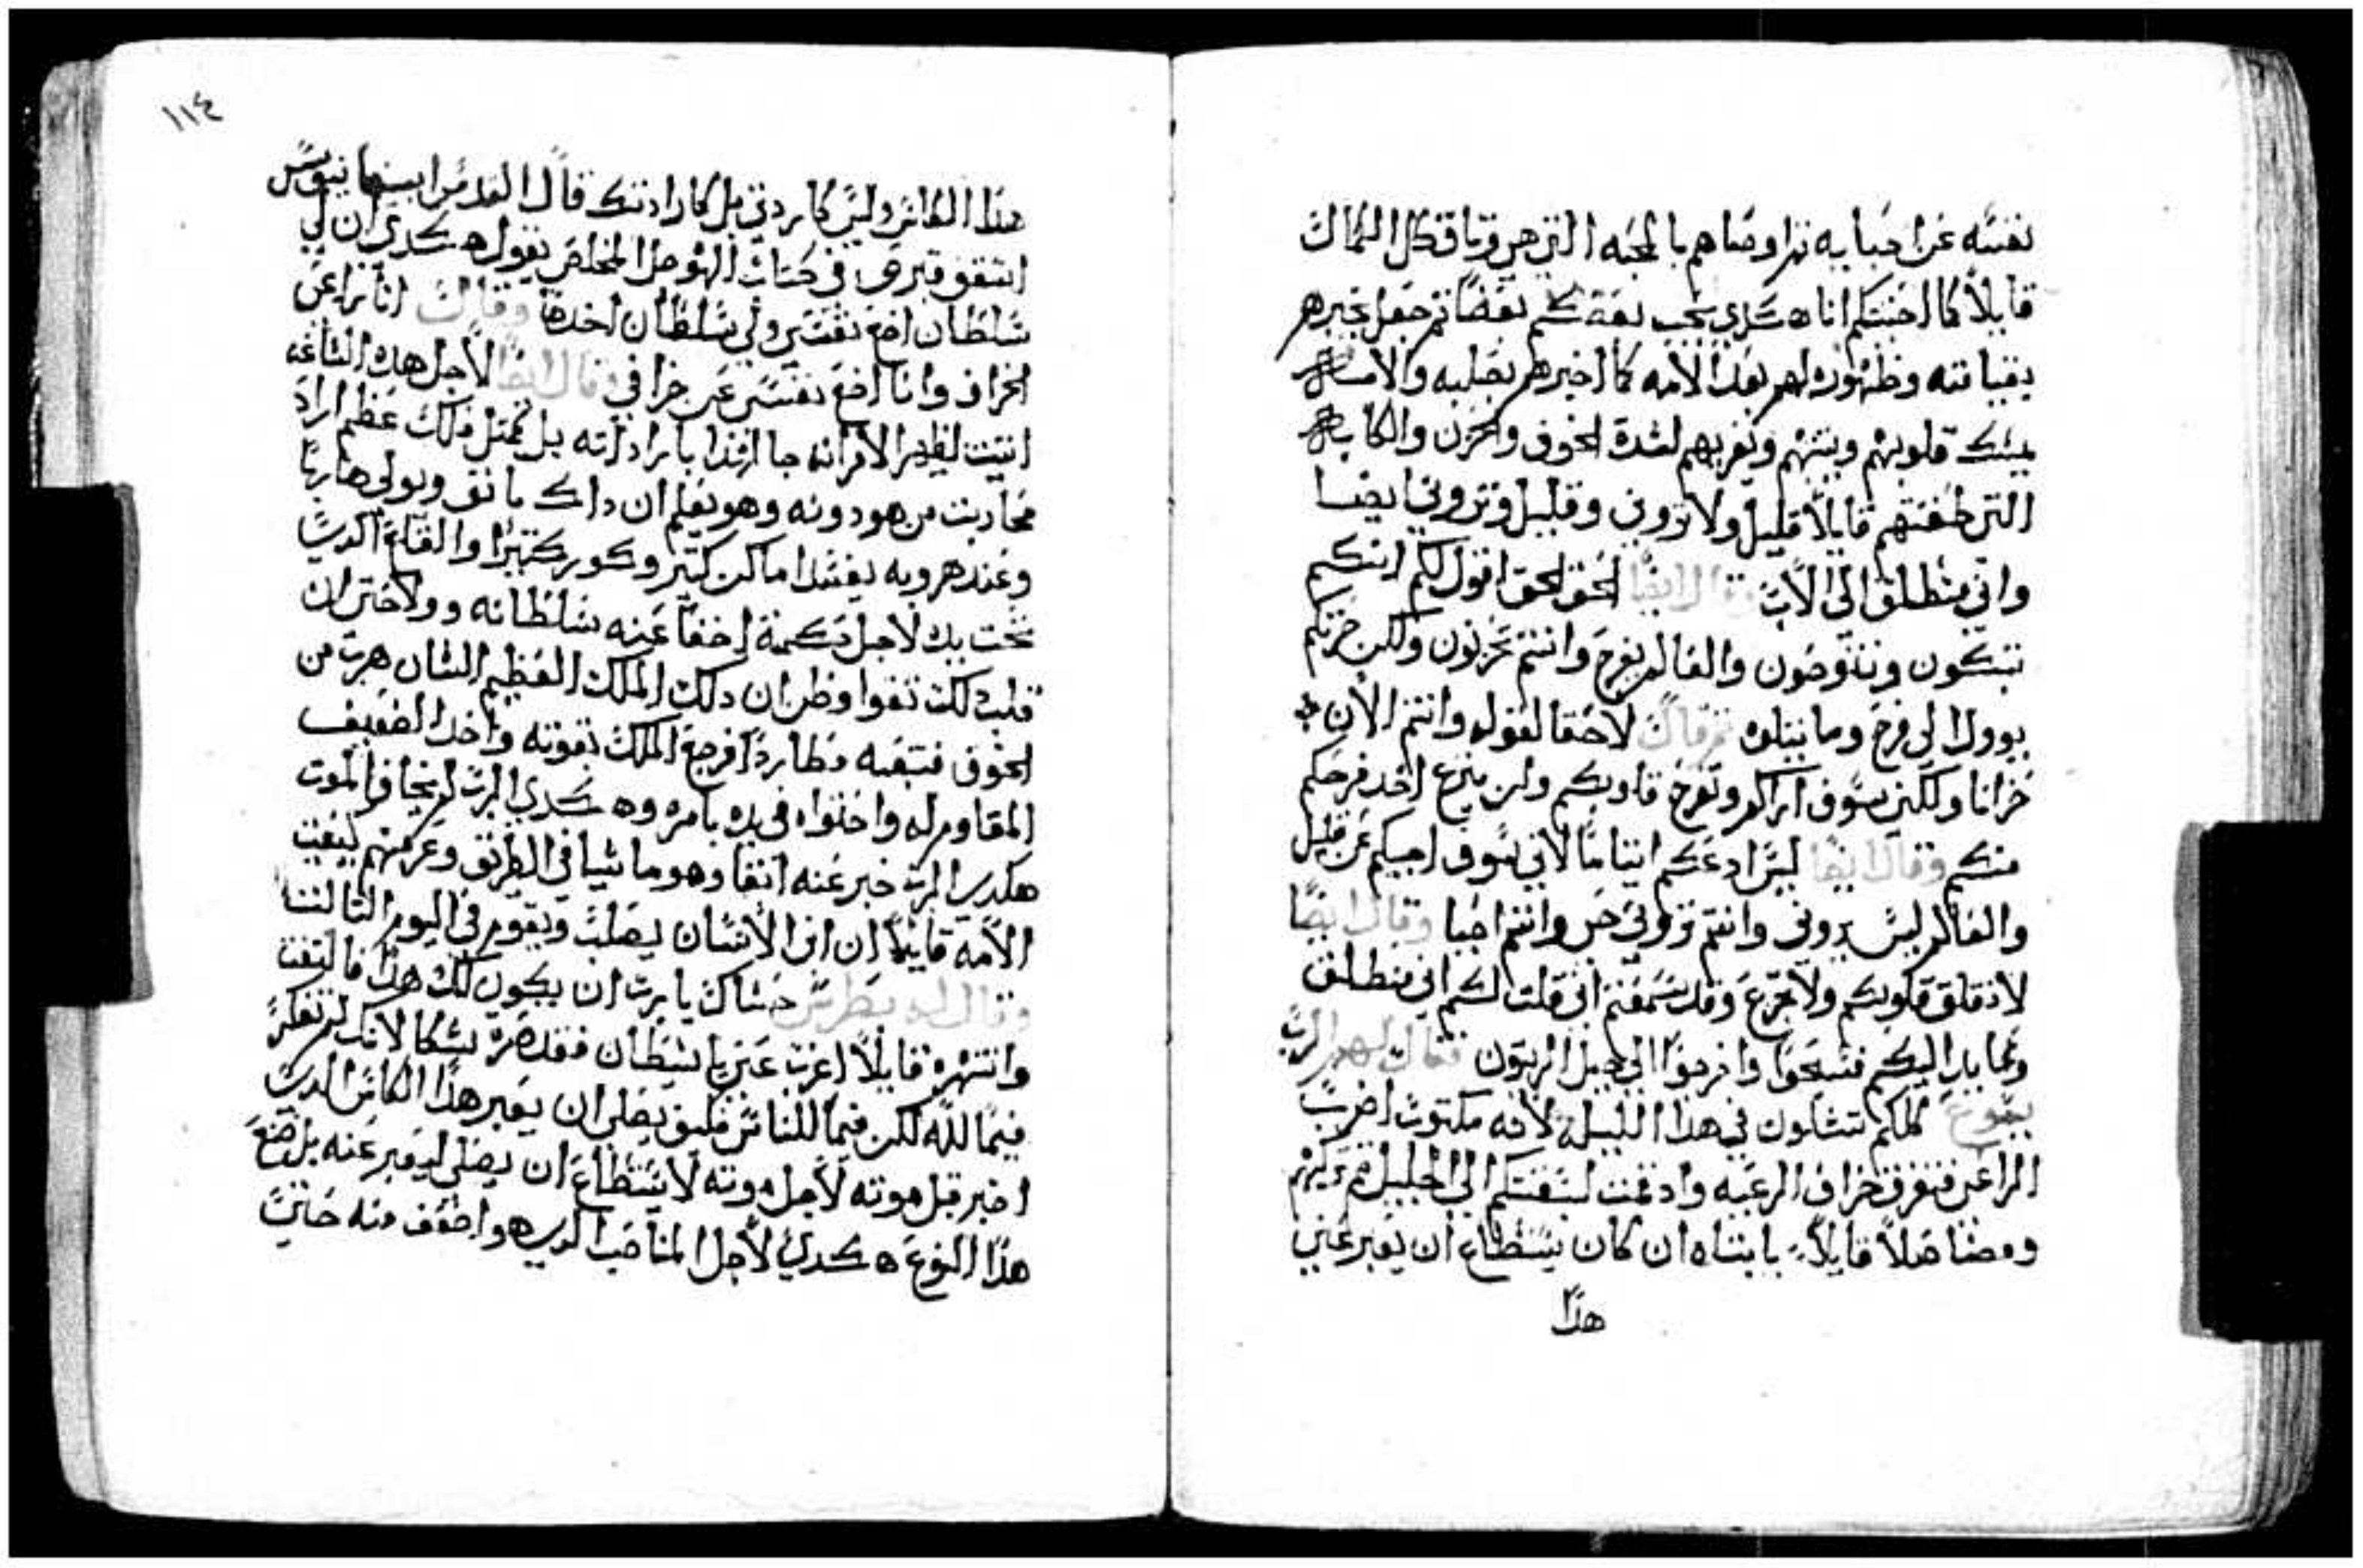 نفسه عن احبايه ثم اوصاهم بالمحبه التي هي وثاق كل الكمالات
قايلاً كما احببتكم انا هكدي يحب بعضكم بعضاً ثم جعل يخبرهم
بقيامته وظهوره لهم بعد الامه كما اخبرهم بصلبه والامه
يمسك قلوبهم ويثبتهم ويعزيهم لشدة الخوف والحزن والكابه
التي ضغتهم قايلاً قليل ولا تروني وقليل وتروني ايضا
واني منطلق الي الاب وقال ايضاً الحق الحق اقول لكم انكم
تبكون وتنوحون والعالم يفرح وانتم تحزنون ولكن حزنكم
يوول الي فرح وما يتلوه ثم قال لاحقا لقوله وانتم الان
حزانا ولكني سوف اراكم وتفرح قلوبكم ولن ينزع احد فرحكم
منكم وقال ايضا ليس ادعكم ايتاما لاني سوف اجيكم عن قليل
والعالم ليس يروني وانتم تروني حي وانتم احيا وقال ايضاً
لا تقلق قلوبكم ولا تجزع وقد سمعتم اني قلت لكم اني منطلق
وعايد اليكم فسبحوا وخرجوا الي جبل الزيتون فقال لهم الرب
يسوع كلكم تشكون في هدا الليلة لانه مكتوب اضرب
الراعي فتفرق خراف الرعيه واد سبقتكم الي الجليل ثم تركهم
ومضا صلاً قايلاً يا ابتاه ان كان يستطاع ان يعبر عني
هدا
١١٤
هدا الكاس وليس كارادتي بل كارادتك قال القديس ابيفانيوس
اسقف قبرص في كتاب المخلص يقول هكدي ان لي
سلطان اضع نفسي ولي سلطان اخدها وقال انا راعي
الخراف وانا اضع نفسي عن خرافي وقال ايضاً لاجل هده الساعه
اتيت ليظهر الامر انه جا بارادته بل كمثل ملك عظيم اراد
محاربت من هو دونه وهو يعلم ان داك مانق ويولي هارباً
وعند هروبه يفسد اماكن كثير وكور كثيرا والقاع الدي
تحت يده لاجل حكمة اخفا عنه سلطانه
فلدلك تقوا وظن ان دلك الملك العظيم الشان هرب من
الخوف فتبعه مطارداً فرجع الملك بقوته واخد الضعيف
المقاوم له واحتواه في يده بامره وهكدي الرب لم يخاف الموت
هكدي الرب خبر عنه انفا وهو ماشيا في الطريق وعرفهم
الامه قايلاً ان ابن الانسان يصلب ويقوم في اليوم الثالث
وقال له بطرس حشاك يا رب ان يكون لك هدا فالتفت
وانتهره قايلاً اعزب عني يا شيطان فقد صرة شكا لانك لم تفكر
فيما لله لكن فيما للناس فكيف يصلي ان يعبر هدا الكاس الدي
اخبر قبل موته لاجل موته لا يستطاع ان يصلي ليعبر عنه بل صنع
هدا النوع هكدي لاجل المناصب الدي هو اضعف منه